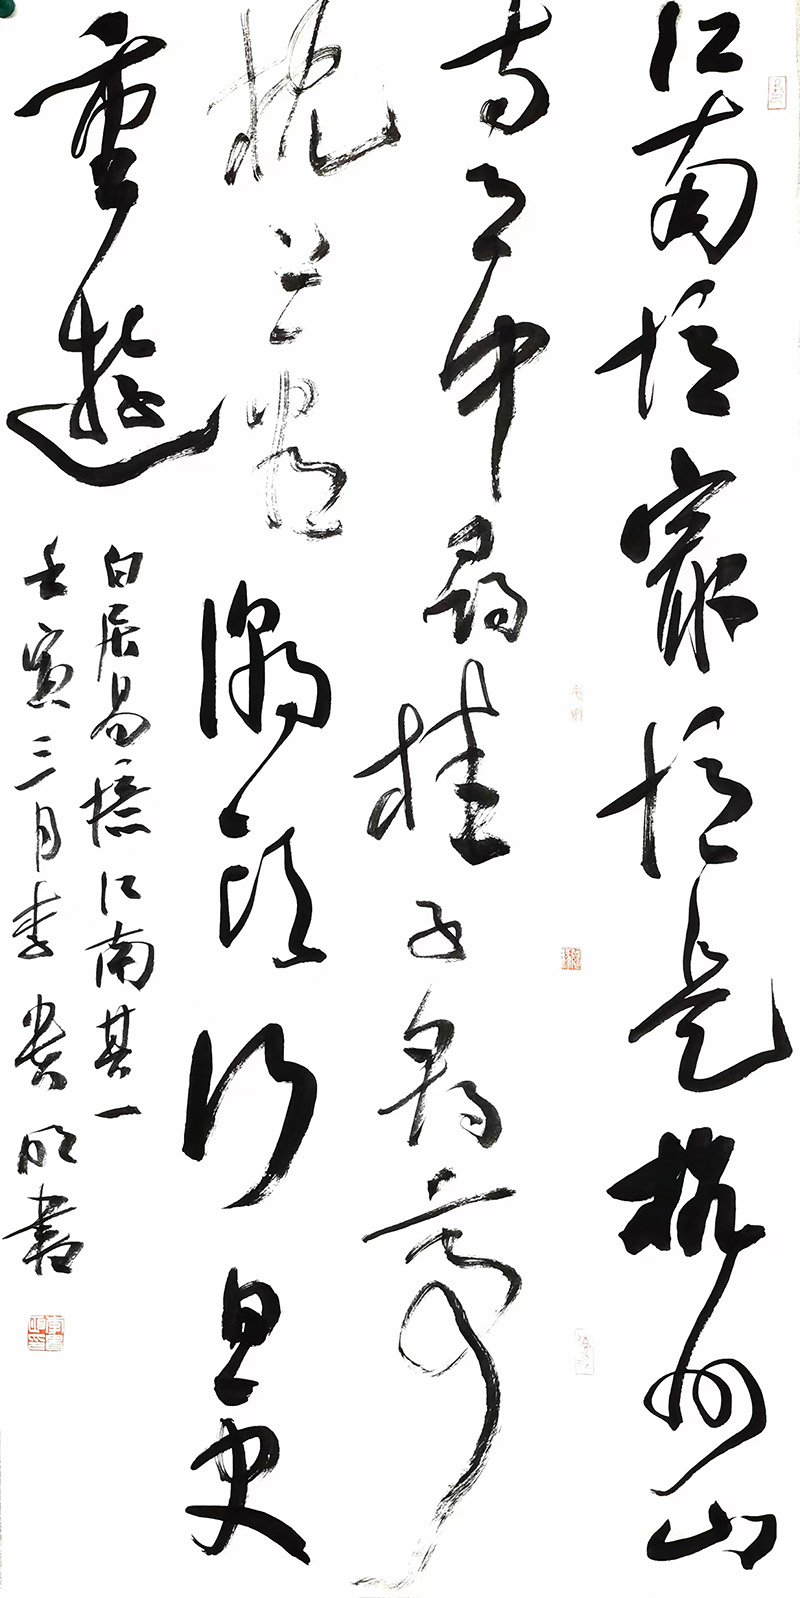 江南憶最憶是杭州山
寺月中尋桂子郡亭
枕上看潮頭何日更
重遊
白居易憶江南其一
壬寅三月李貴明書